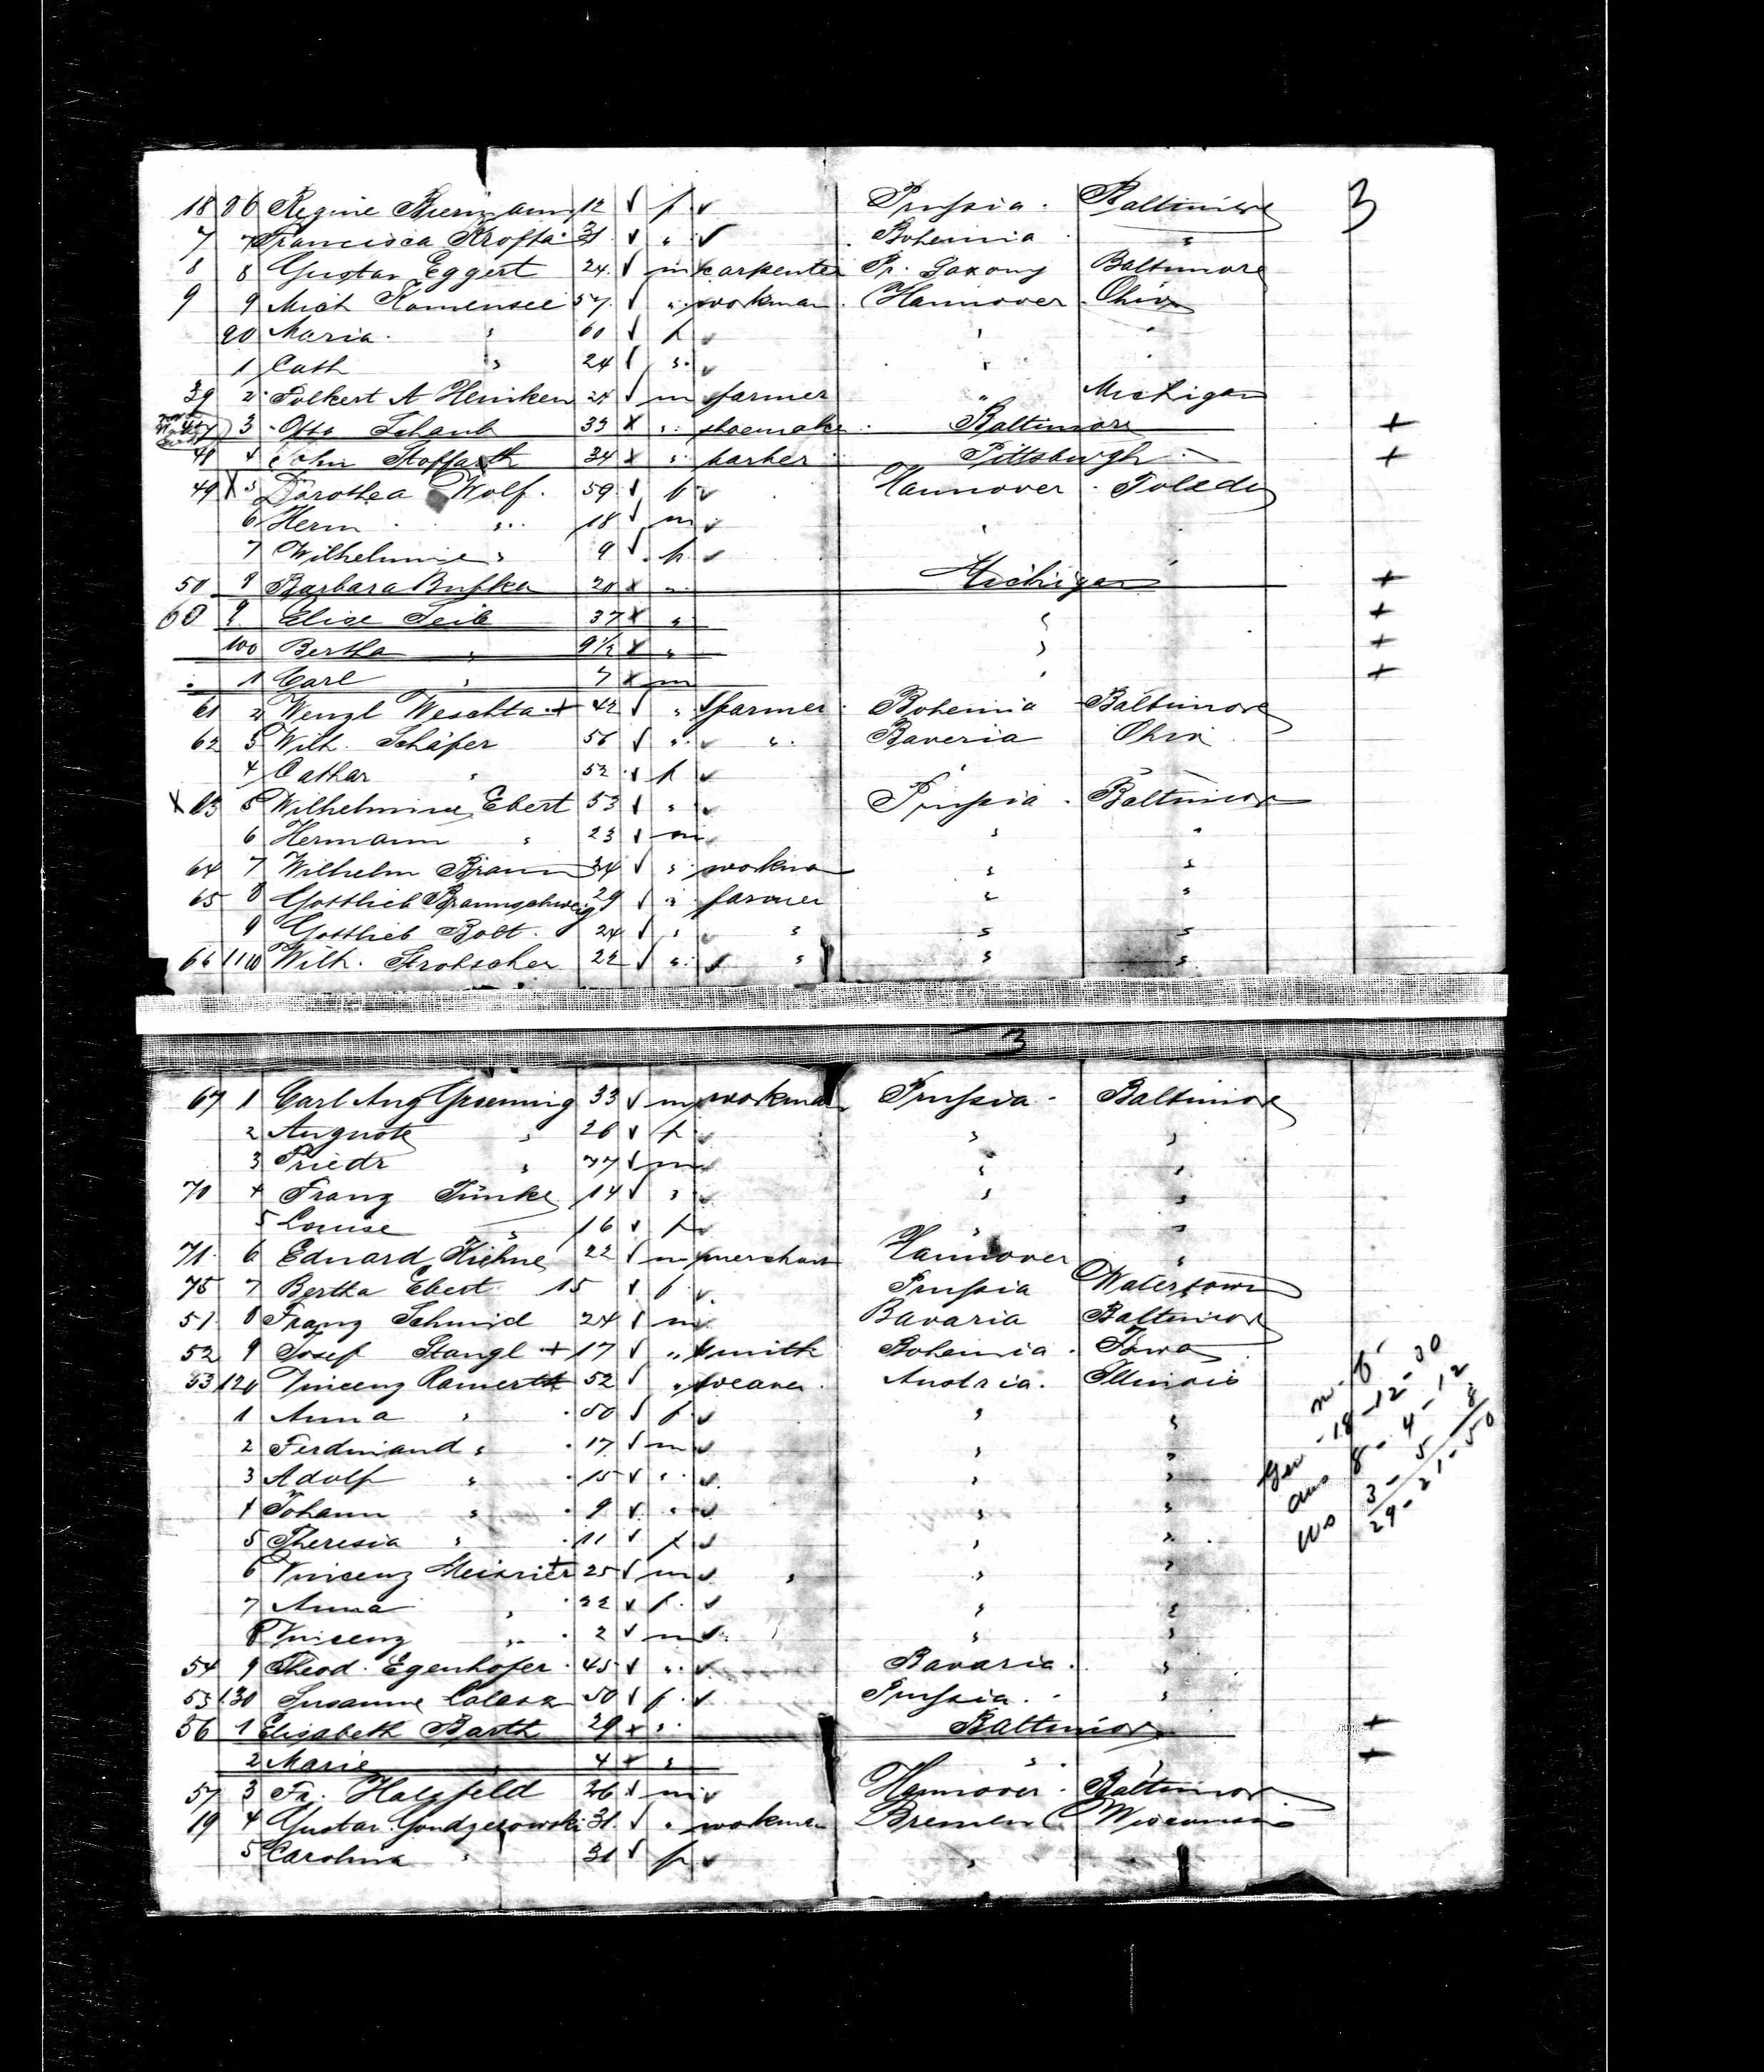 3
18 86 Regine Biermann 12 f Prussia. Baltimore
7 7 Francisca Krofta 31 " Bohemia "
8 8 Gustav Eggert 24 m carpenter Pr. Saxony Baltimore
9 9 Mich Kamensee 57 " workman Hannover Ohio
90 Maria " 60 f " "
1 Cath " 24 " " "
39 2 Folkert A Heniken 24 m farmer " Michigan
47 3 Otto Schaub 33 x " shoemaker Baltimore +
48 4 John Stoffarth 34 x " barber Pittsburgh +
49 X 5 Dorothea Wolf. 59 f Hannover Toledo
6 Herm " 18 m " "
7 Wilhelmine " 9 f "
50 8 Barbara 20 x " Michigan +
60 9 Elise Seib 37 x " " +
100 Bertha " 9 1/2 x " " +
1 Carl " 7 x m " +
61 2 Wenzl Weschta + 42 " farmer Bohemia Baltimore
62 3 Wilh. Schäfer 56 " " Baveria Ohio
4 Cathar " 52 f " "
X 63 5 Wilhelmine Ebert 53 " Prussia. Baltimore
6 Hermann " 23 m " "
64 7 Wilhelm Braun 34 " workma " "
65 8 Gottlieb Braunschweig 29 " farmer " "
9 Gottlieb Bolt. 24 " " " "
66 110 Wilh. Strohscher 22 " " " "
3
67 1 Carl Aug Groening 33 m workman Prussia - Baltimore
2 Auguste " 26 f " "
3 Friedr " m " "
70 4 Franz Künke 14 " " "
5 Louise " 16 f " "
71 6 Eduard Kiehne 22 m merchant Hannover "
75 7 Bertha Ebert 15 f Prussia Watertown
51 8 Franz Schmid 24 m Bavaria Baltimore
52 9 Josef Stangl + 17 " smith Bohemia. Iowa
53 120 Vincenz Ramerth 52 " weaver Austria. Illinois
1 Anna " 50 f " "
2 Ferdinand " 17 m " "
3 Adolf " 15 " " "
4 Johann " 9 " " "
5 Theresia " 11 f " "
6 Vincenz 25 m " " "
7 Anna " 22 f " "
8 Vincenz " 2 m " "
54 9 Theod. Egenhofer 45 " Bavaria. "
55 130 Susanne 50 f Prussia. "
56 1 Elisabeth Barth 29 x " Baltimore +
2 Marie " 4 x " " +
57 3 Fr. Holzfeld 26 m Hannover. Baltimore
19 4 Gustav Gondzerowski 31 " workman Bremen Wisconsin
5 Carolina " 31 f " "
m. f.
Ger - 18 - 12 - 30
Aus 8 - 4 - 12
US 3 - 5 8
29 - 21 - 50